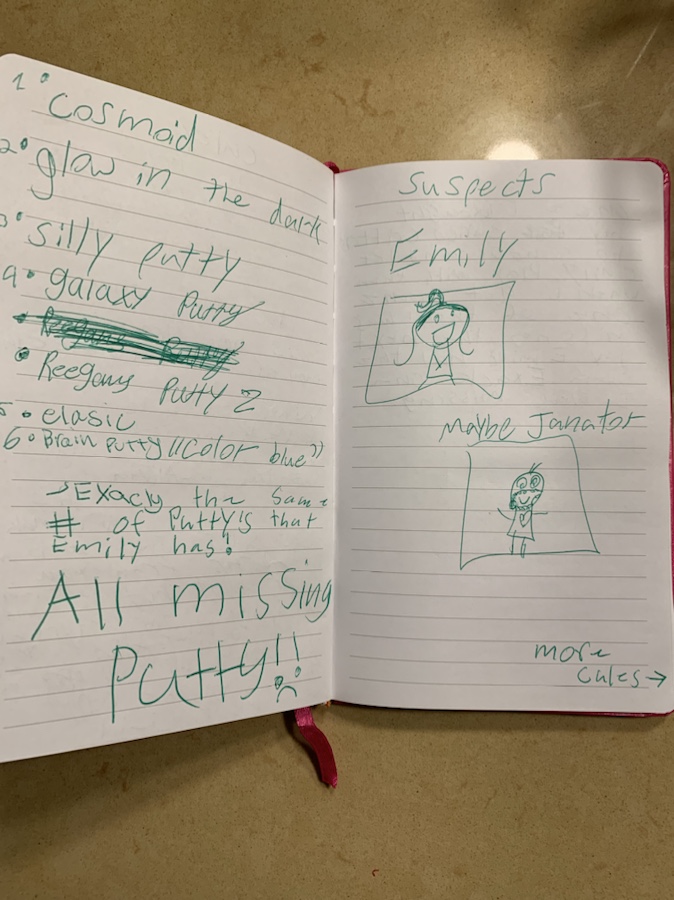 1• Cosmoid
2• glow in the dark
3• silly putty
4• galaxy Putty
• Reegans Putty 2
5• elasic
6• Brain Putty "Color blue"
→Exacly the same
# of Putty's that
Emily has!
All missing
Putty!!
Suspects
Emily
Maybe Janator
more
Cules→